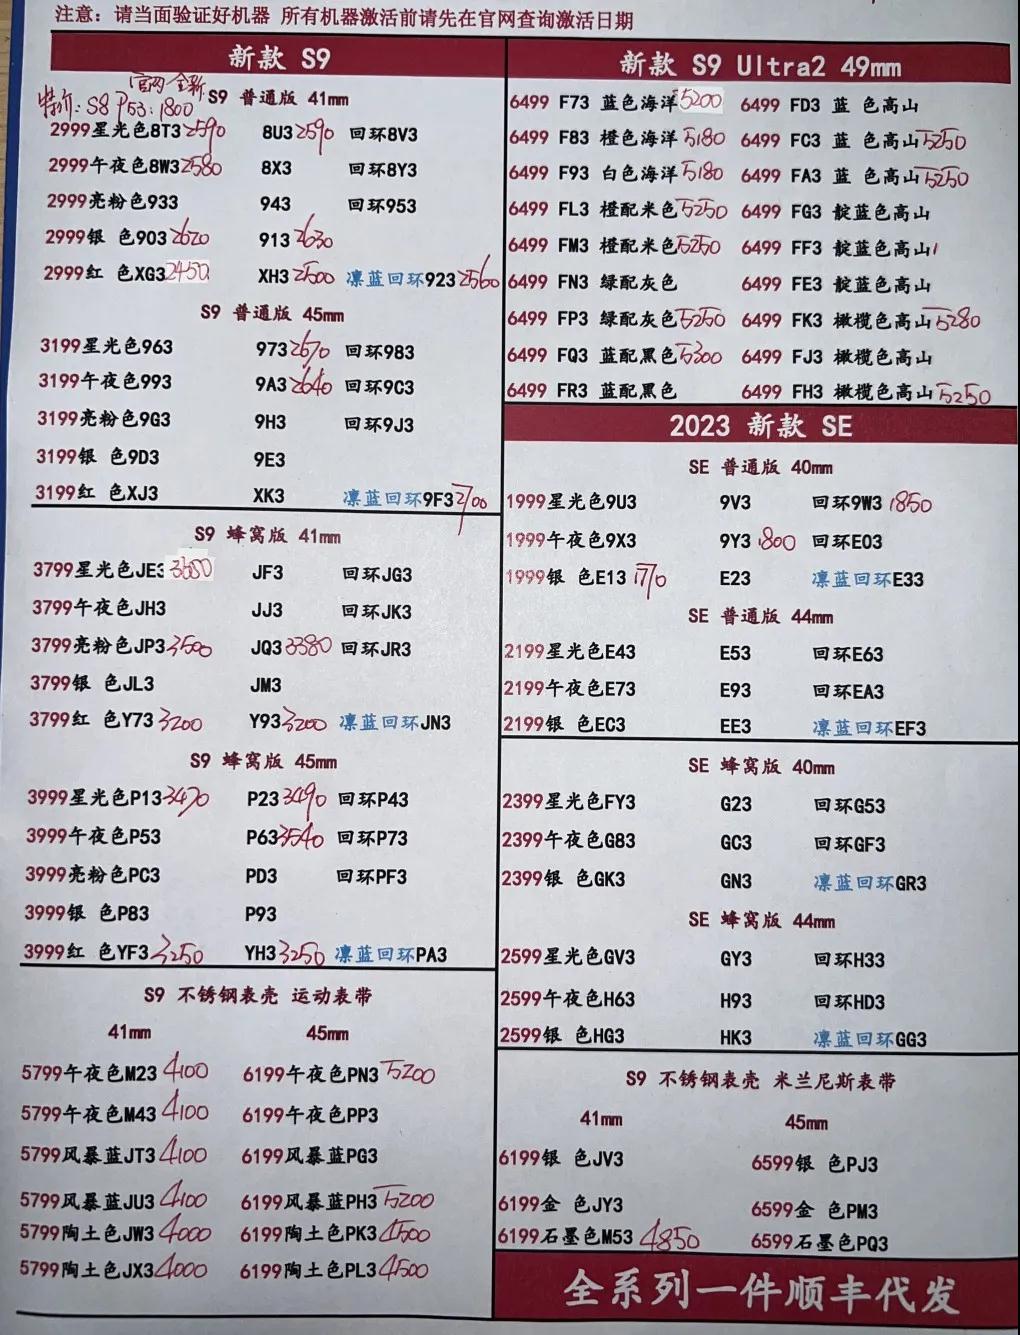 注意：请当面验证好机器 所有机器激活前请先在官网查询激活日期
新款 S9
官网全新
特价：S8 P53：1800
S9 普通版 41mm
2999星光色8T3 2590 8U3 2590 回环8V3
2999午夜色8W3 2580 8X3 回环8Y3
2999亮粉色933 943 回环953
2999银 色903 2620 913 2630
2999红 色XG3 2450 XH3 2500 凛蓝回环923 2560
S9 普通版 45mm
3199星光色963 973 2670 回环983
3199午夜色993 9A3 2640 回环9C3
3199亮粉色9G3 9H3 回环9J3
3199银 色9D3 9E3
3199红 色XJ3 XK3 凛蓝回环9F3 2700
S9 蜂窝版 41mm
3799星光色JE3 JF3 回环JG3
3799午夜色JH3 JJ3 回环JK3
3799亮粉色JP3 3500 JQ3 3380 回环JR3
3799银 色JL3 JM3
3799红 色Y73 3200 Y93 3200 凛蓝回环JN3
S9 蜂窝版 45mm
3999星光色P13 3470 P23 3490 回环P43
3999午夜色P53 P63 3540 回环P73
3999亮粉色PC3 PD3 回环PF3
3999银 色P83 P93
3999红 色YF3 3250 YH3 3250 凛蓝回环PA3
S9 不锈钢表壳 运动表带
41mm 45mm
5799午夜色M23 4100 6199午夜色PN3 5200
5799午夜色M43 4100 6199午夜色PP3
5799风暴蓝JT3 4100 6199风暴蓝PG3
5799风暴蓝JU3 4100 6199风暴蓝PH3 5200
5799陶土色JW3 4000 6199陶土色PK3 4500
5799陶土色JX3 4000 6199陶土色PL3 4500
新款 S9 Ultra2 49mm
6499 F73 蓝色海洋 5200 6499 FD3 蓝 色高山
6499 F83 橙色海洋 5180 6499 FC3 蓝 色高山 5250
6499 F93 白色海洋 5180 6499 FA3 蓝 色高山 5250
6499 FL3 橙配米色 5250 6499 FG3 靛蓝色高山
6499 FM3 橙配米色 5250 6499 FF3 靛蓝色高山
6499 FN3 绿配灰色 6499 FE3 靛蓝色高山
6499 FP3 绿配灰色 5250 6499 FK3 橄榄色高山 5280
6499 FQ3 蓝配黑色 5300 6499 FJ3 橄榄色高山
6499 FR3 蓝配黑色 6499 FH3 橄榄色高山 5250
2023 新款 SE
SE 普通版 40mm
1999星光色9U3 9V3 回环9W3 1850
1999午夜色9X3 9Y3 1800 回环E03
1999银 色E13 1770 E23 凛蓝回环E33
SE 普通版 44mm
2199星光色E43 E53 回环E63
2199午夜色E73 E93 回环EA3
2199银 色EC3 EE3 凛蓝回环EF3
SE 蜂窝版 40mm
2399星光色FY3 G23 回环G53
2399午夜色G83 GC3 回环GF3
2399银 色GK3 GN3 凛蓝回环GR3
SE 蜂窝版 44mm
2599星光色GV3 GY3 回环H33
2599午夜色H63 H93 回环HD3
2599银 色HG3 HK3 凛蓝回环GG3
S9 不锈钢表壳 米兰尼斯表带
41mm 45mm
6199银 色JV3 6599银 色PJ3
6199金 色JY3 6599金 色PM3
6199石墨色M53 4850 6599石墨色PQ3
全系列一件顺丰代发